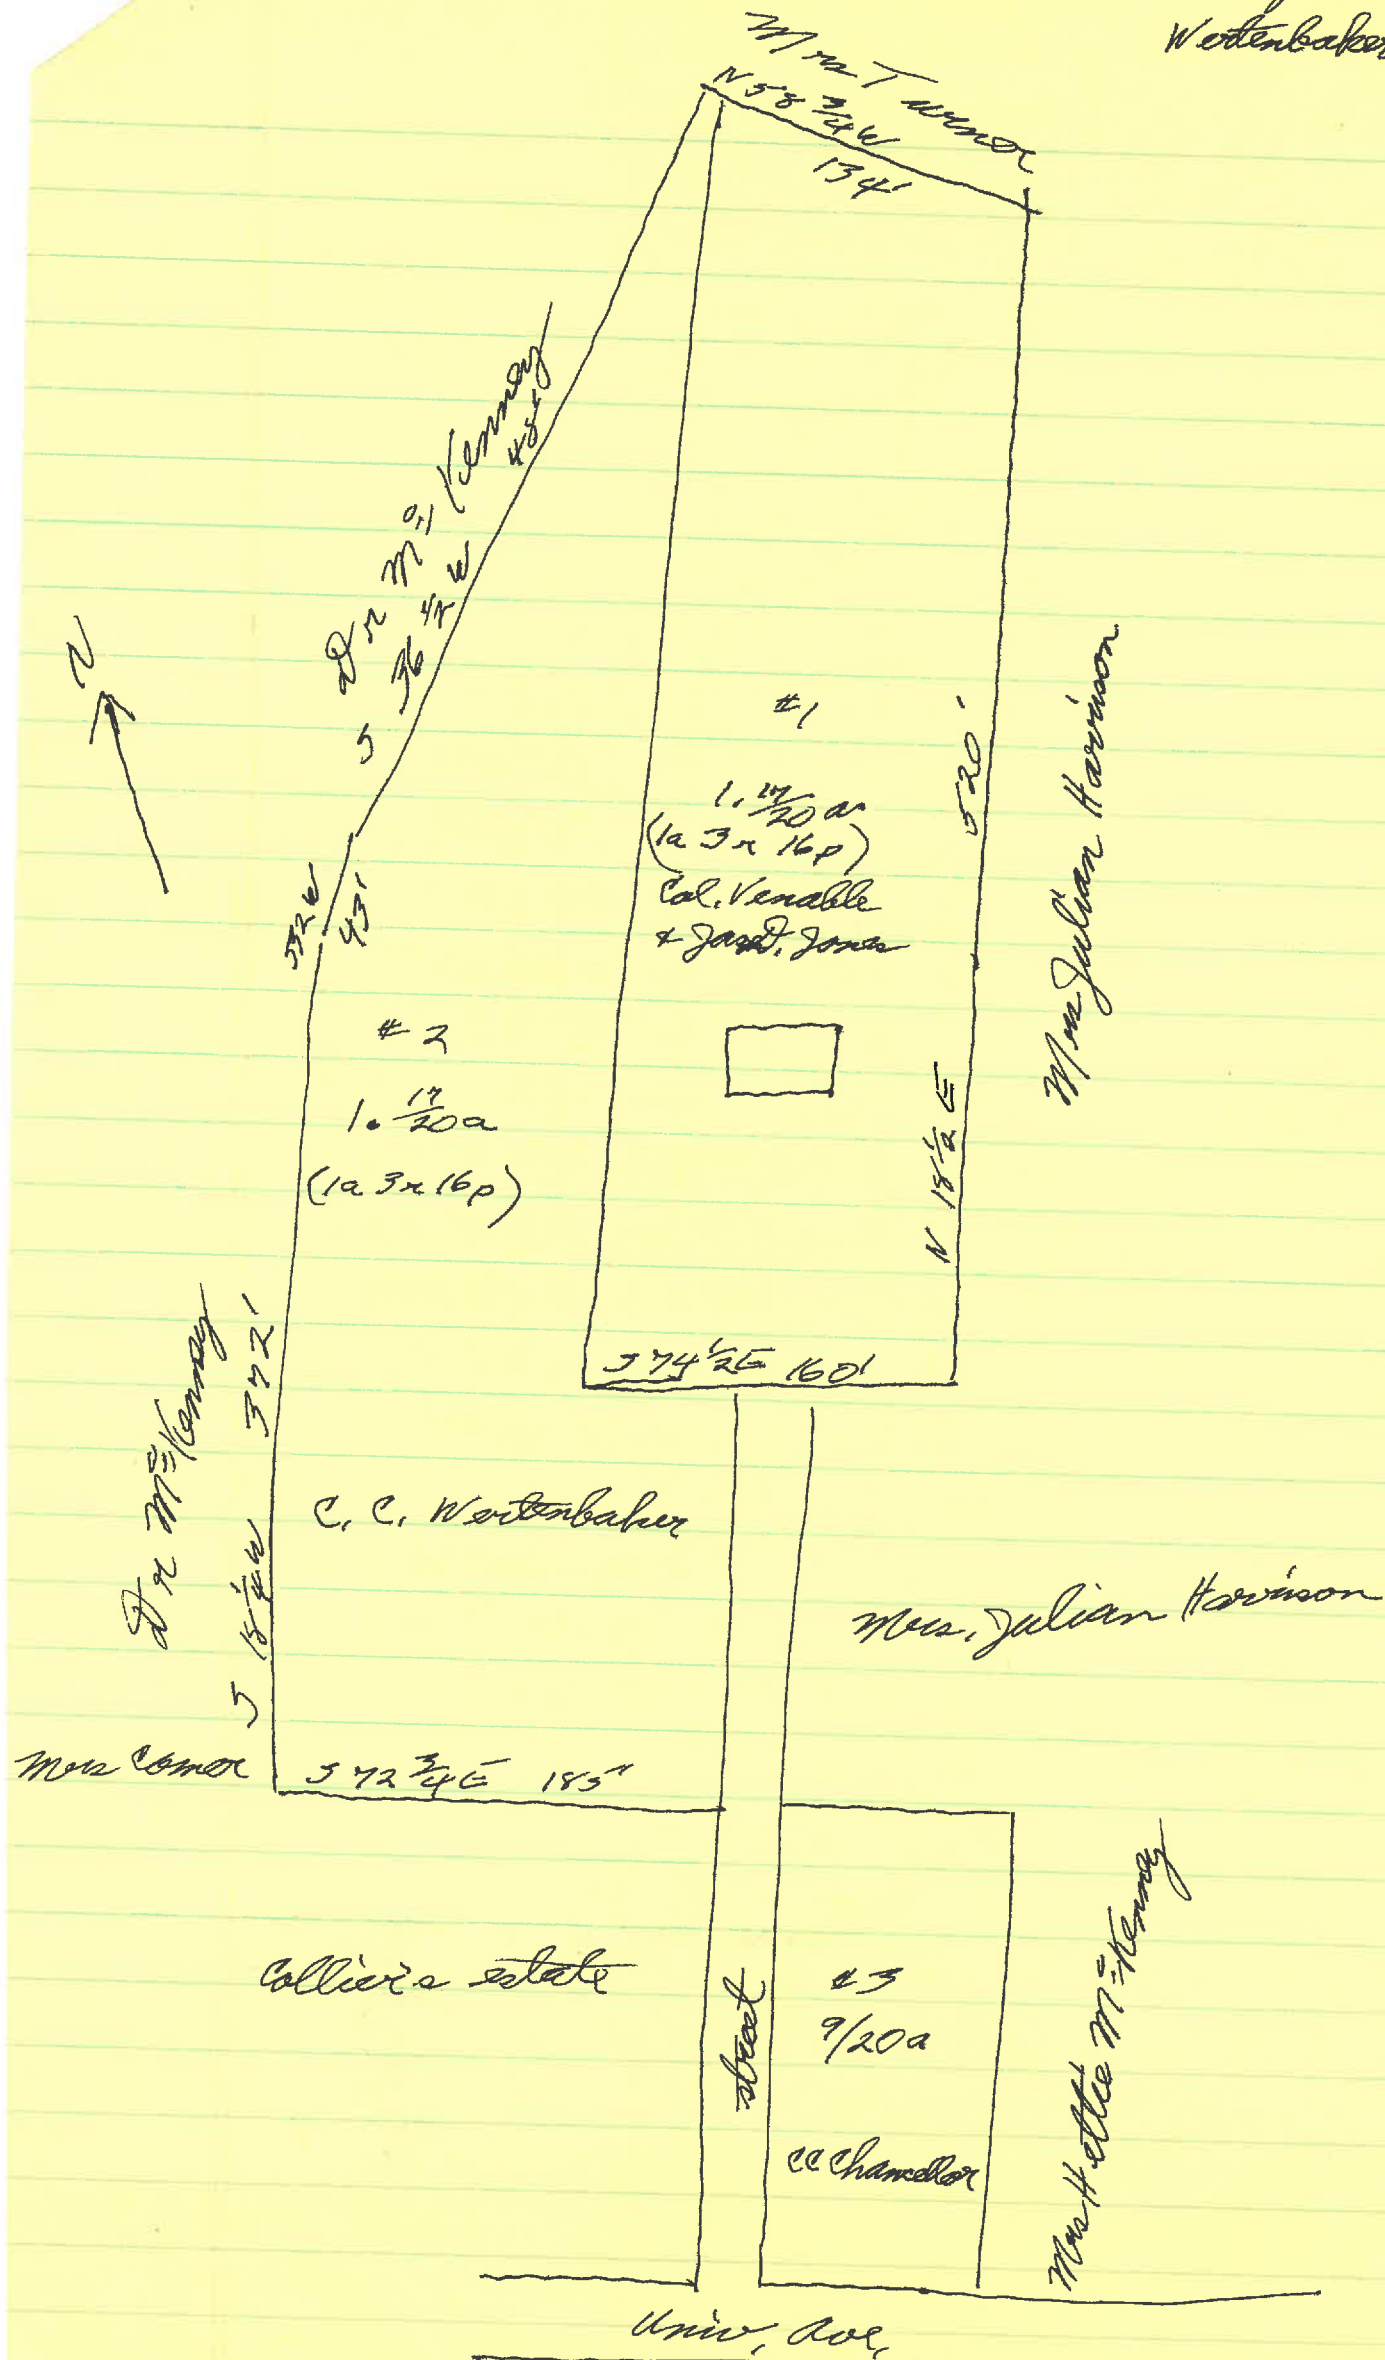 Wertenbaker
Mrs Turner
N 58 3/4 W
134'
Dr McKenney
S 36 1/2 W
N
#1
1. 17/20 a
(1a 3r 16p)
Col. Venable
& Jas. D. Jones
520'
N 18 1/2 E
Mrs Julian Harrison
S32W
43'
#2
1. 17/20 a
(1a 3r 16p)
S 74 1/2 E 160'
Dr McKenney
S 18 1/4 W 372'
C. C. Wertenbaker
Mrs. Julian Harrison
Mrs Comer
S 72 3/4 E 185'
Collier's estate
street
#3
9/20a
CC Chancellor
Mrs Hettie McKenney
Univ. Ave.